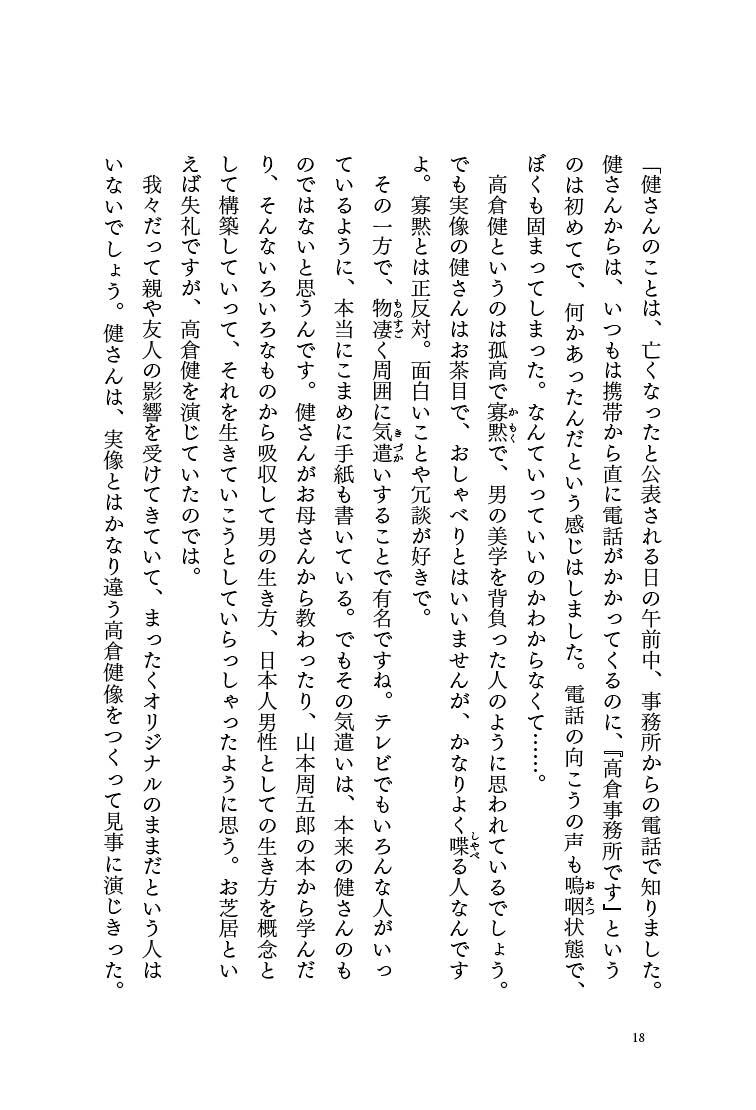 「健さんのことは、亡くなったと公表される日の午前中、事務所からの電話で知りました。
健さんからは、いつもは携帯から直に電話がかかってくるのに、『高倉事務所です」という
のは初めてで、何かあったんだという感じはしました。電話の向こうの声も嗚咽状態で、
ぼくも固まってしまった。なんていっていいのかわからなくて……。
高倉健というのは孤高で寡黙で、男の美学を背負った人のように思われているでしょう。
でも実像の健さんはお茶目で、おしゃべりとはいいませんが、かなりよく喋る人なんです
よ。寡黙とは正反対。面白いことや冗談が好きで。
その一方で、物凄く周囲に気遣いすることで有名ですね。テレビでもいろんな人がいっ
ているように、本当にこまめに手紙も書いている。でもその気遣いは、本来の健さんのも
のではないと思うんです。健さんがお母さんから教わったり、山本周五郎の本から学んだ
り、そんないろいろなものから吸収して男の生き方、日本人男性としての生き方を概念と
して構築していって、それを生きていこうとしていらっしゃったように思う。お芝居とい
えば失礼ですが、高倉健を演じていたのでは。
我々だって親や友人の影響を受けてきていて、まったくオリジナルのままだという人は
いないでしょう。健さんは、実像とはかなり違う高倉健像をつくって見事に演じきった。
18